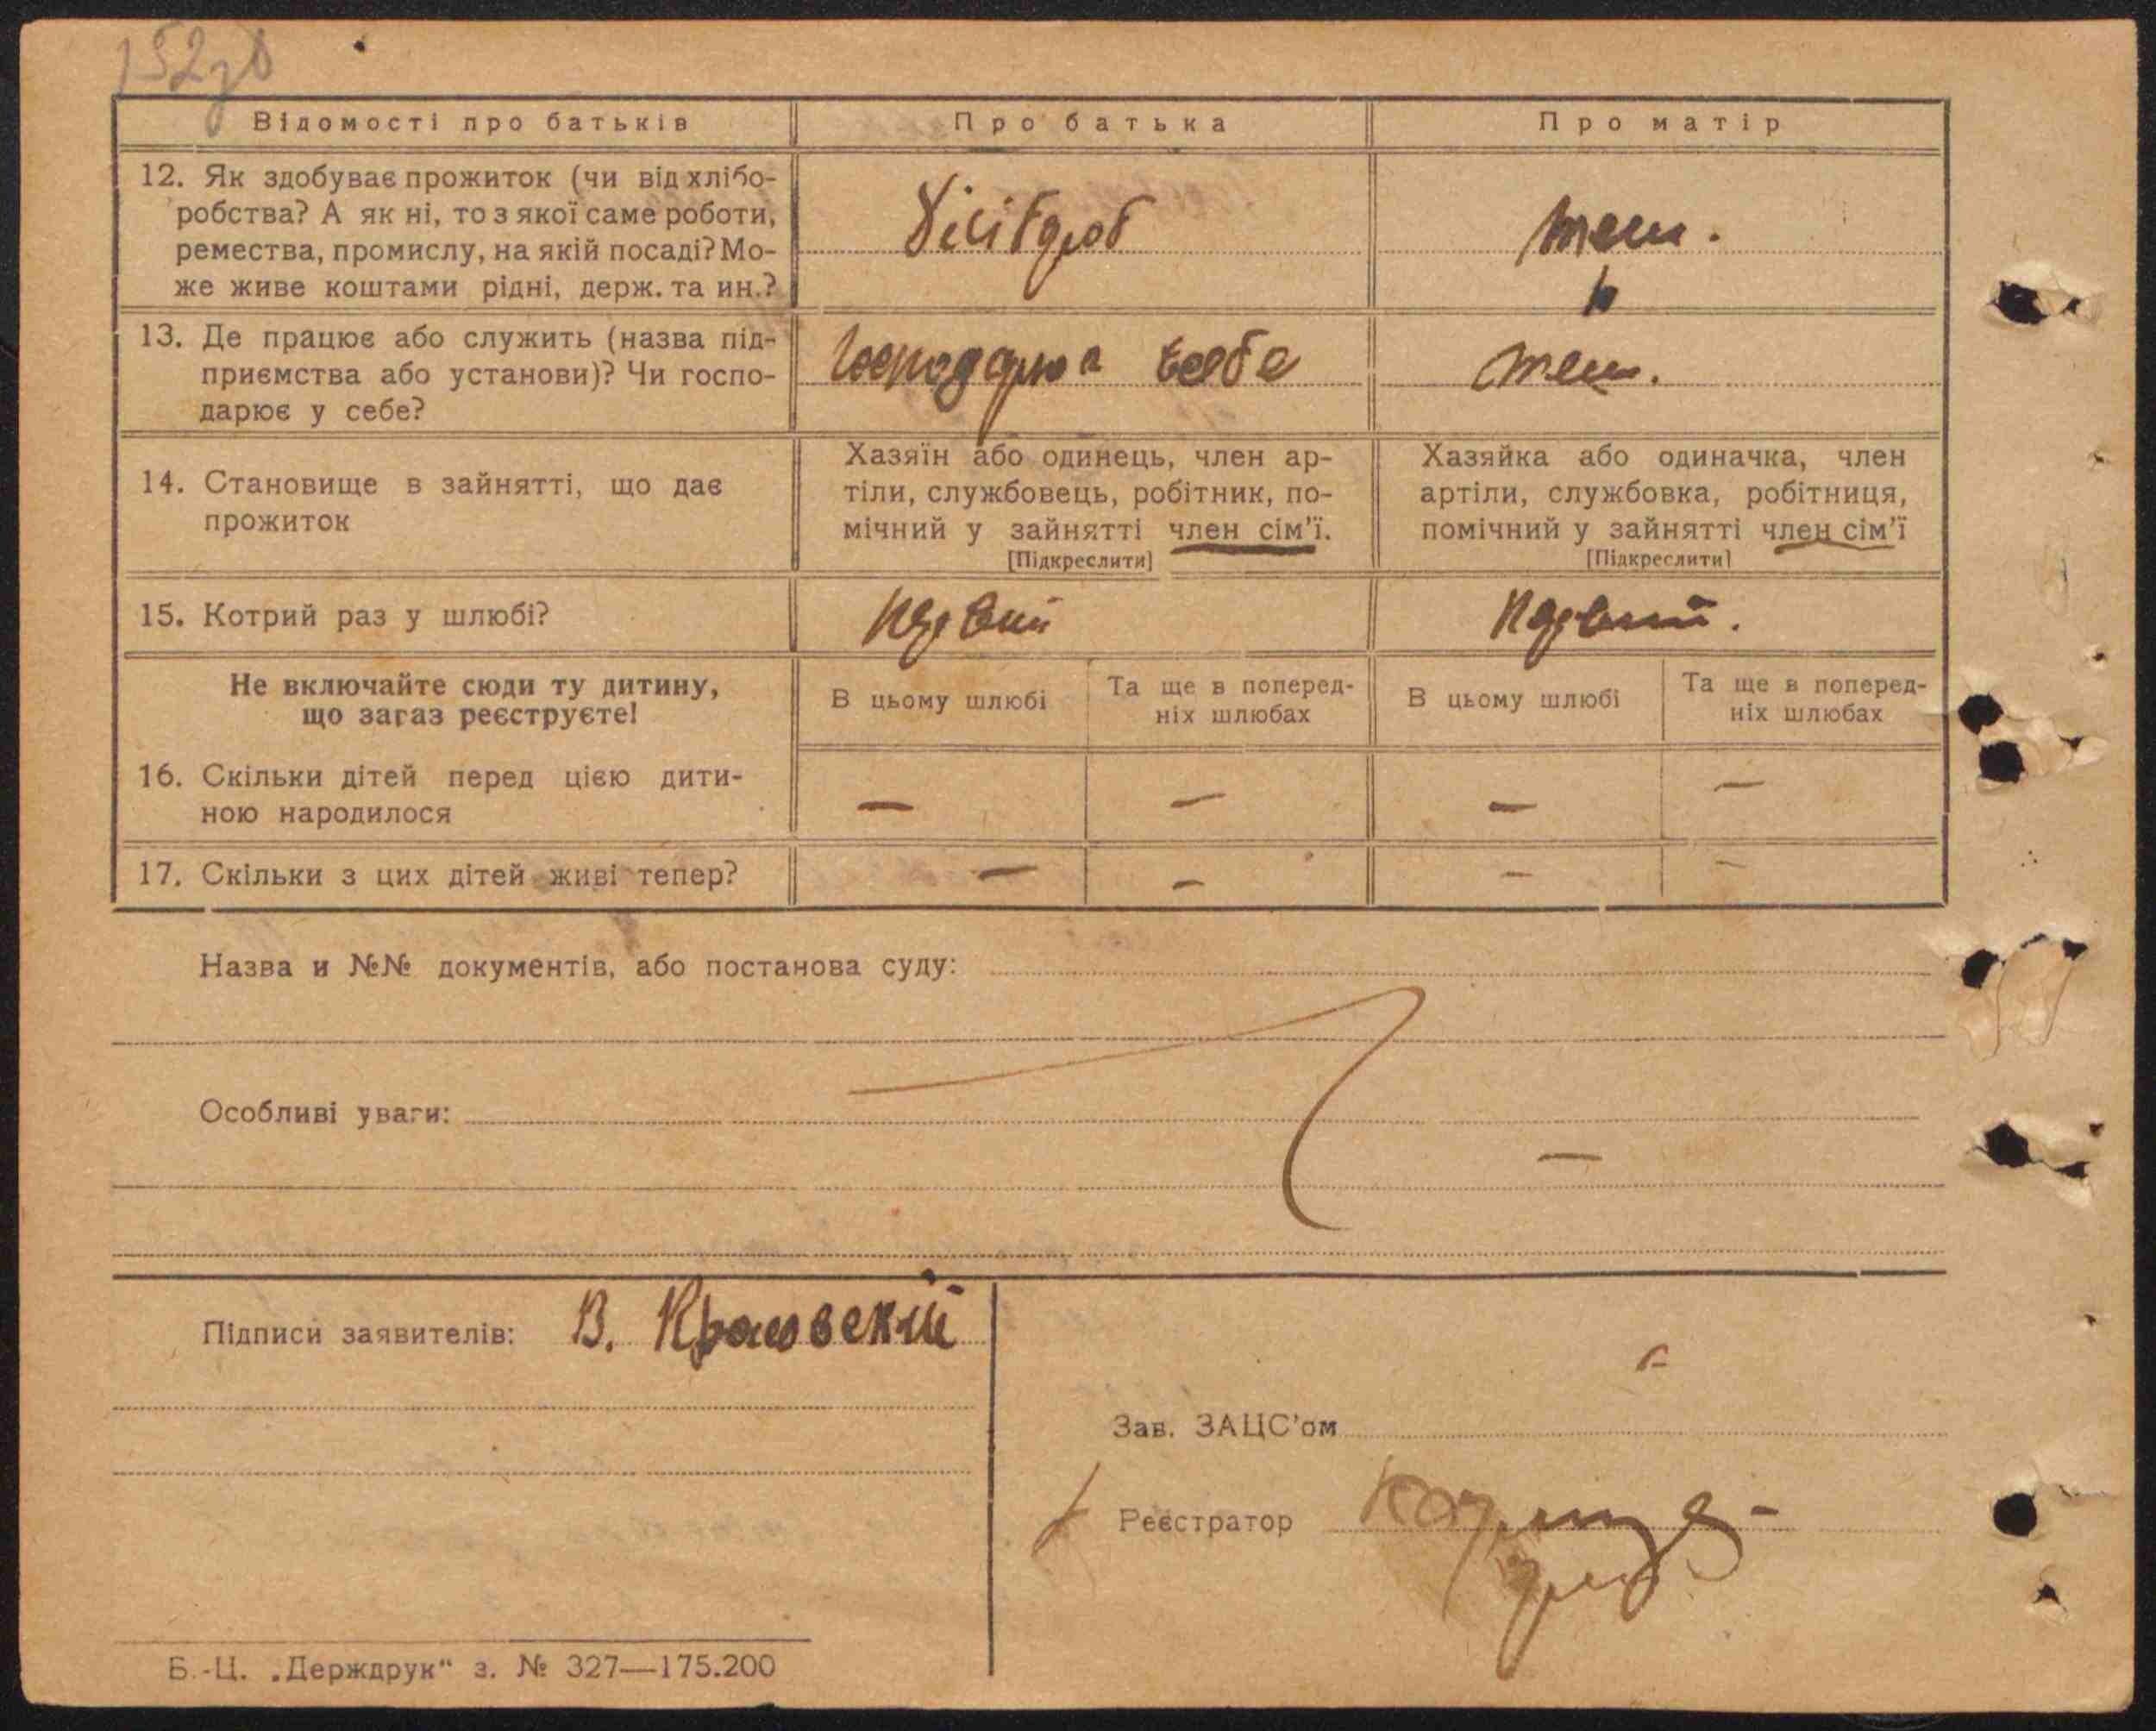 152зв
Відомості про батьків
Про батька
Про матір
12. Як здобуває прожиток (чи від хлібо-
робства? А як ні, то з якої саме роботи,
ремества, промислу, на якій посаді? Мо-
же живе коштами рідні, держ. та ин.?
Хлібороб
теш.
13. Де працює або служить (назва під-
приємства або установи)? Чи госпо-
дарює у себе?
себе
теш.
14. Становище в зайнятті, що дає
прожиток
Хазяїн або одинець, член ар-
тіли, службовець, робітник, по-
мічний у зайнятті член сім’ї.
[Підкреслити]
Хазяйка або одиначка, член
артіли, службовка, робітниця,
помічний у зайнятті член сім’ї
[Підкреслити]
15. Котрий раз у шлюбі?
первий
первий.
Не включайте сюди ту дитину,
що загаз реєструєте!
В цьому шлюбі
Та ще в поперед-
ніх шлюбах
В цьому шлюбі
Та ще в поперед-
ніх шлюбах
16. Скільки дітей перед цією дити-
ною народилося
— — — —
17. Скільки з цих дітей живі тепер?
— — — —
Назва и №№ документів, або постанова суду:
Особливі уваги:
—
Підписи заявителів: В.
Зав. ЗАЦС’ом
Реєстратор
Б.-Ц. „Держдрук“ з. № 327—175.200